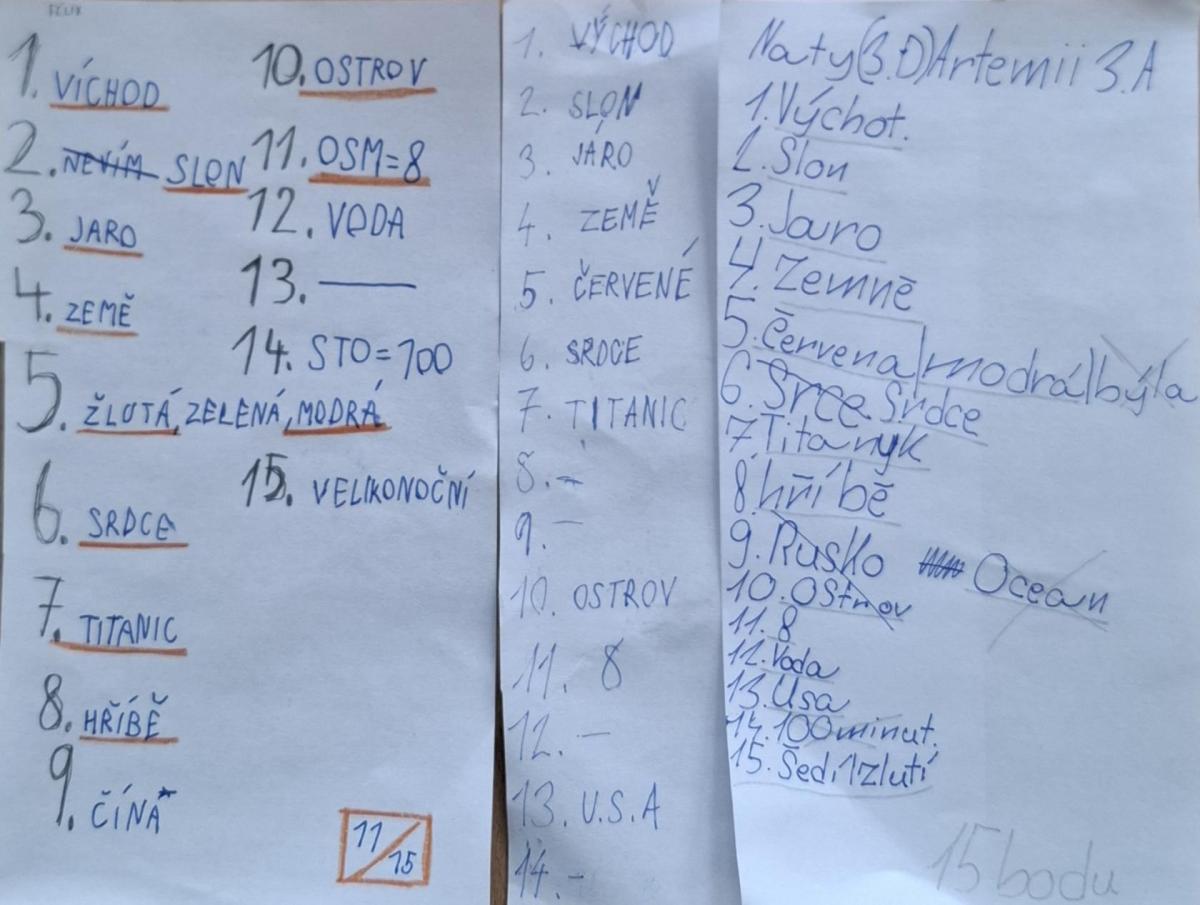 FÉLIX
1. VÍCHOD
2. NEVÍM SLON
3. JARO
4. ZEMĚ
5. ŽLUTÁ, ZELENÁ, MODRÁ
6. SRDCE
7. TITANIC
8. HŘÍBĚ
9. ČÍNA
10. OSTROV
11. OSM=8
12. VODA
13. —
14. STO=100
15. VELIKONOČNÍ
11/15
1. VÝCHOD
2. SLON
3. JARO
4. ZEMĚ
5. ČERVENÉ
6. SRDCE
7. TITANIC
8. –
9. –
10. OSTROV
11. 8
12. –
13. U.S.A
14. –
Naty (3.D) Artemii 3.A
1. Výchot.
2. Slon
3. Jaro
4. Zemně
5. Červena|modrá|býla
6. Srce Srdce
7. Titanyk
8. hříbě
9. Rusko Ocean
10. Ostrov
11. 8
12. Voda
13. Usa
14. 100 minut.
15. Šedi1zlutí
15 bodu